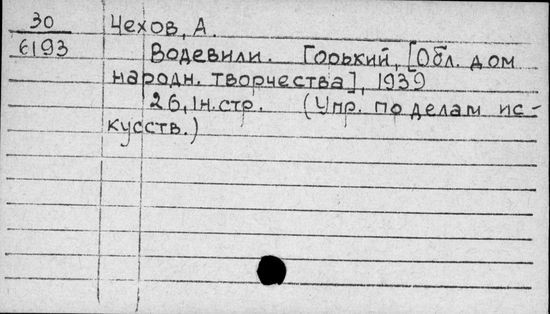 30 Чехов, А.
6193 Водевили. Горький, [Обл. дом
народн. творчества], 1939
26, 1н.стр. (Упр. по делам ис-
кусств.)